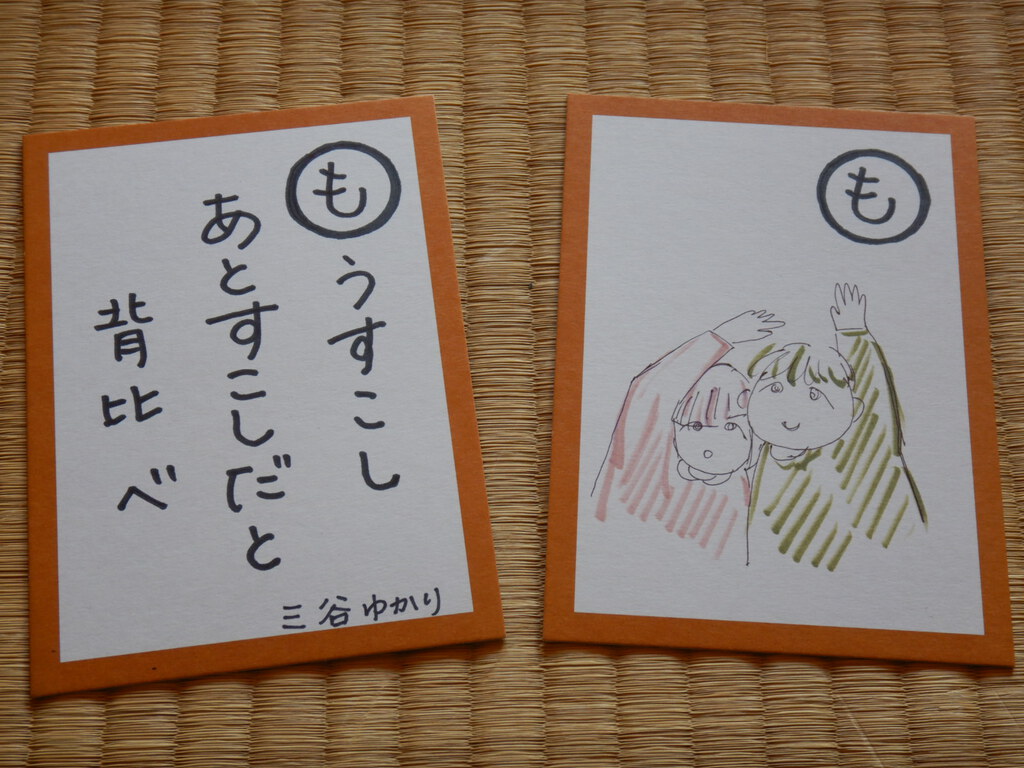 もうすこし
あとすこしだと
背比べ
三谷ゆかり
も